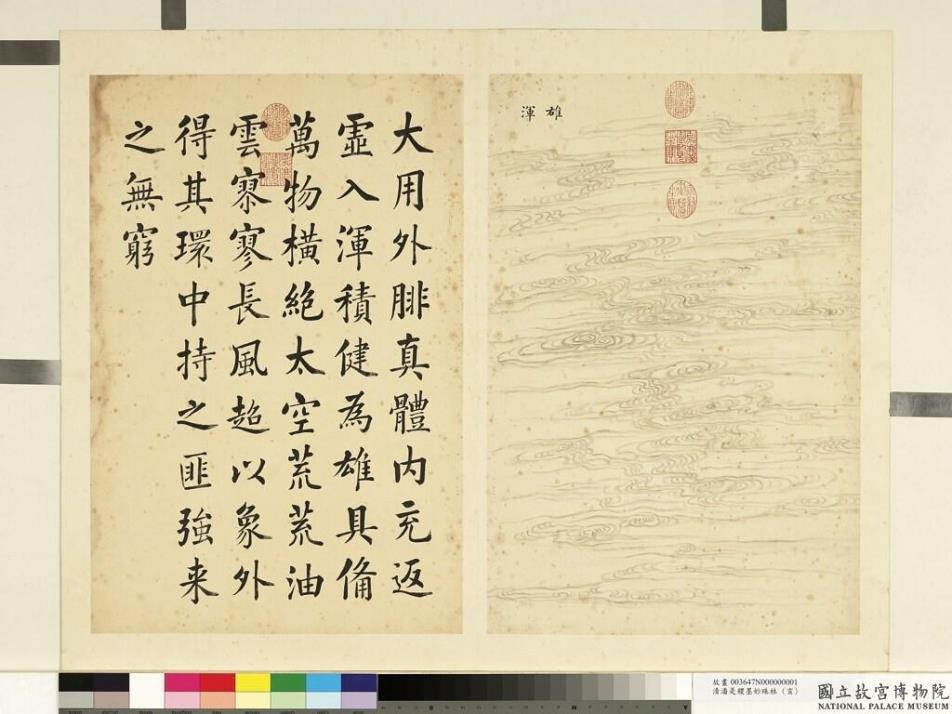 雄渾
大用外腓真體内充返
虛入渾積健為雄具備
萬物橫絕太空荒荒油
雲寥寥長風超以象外
得其環中持之匪強来
之無窮
故畫 003647N000000001
清潘是稷墨妙珠林（亥）
國立故宮博物院
NATIONAL PALACE MUSEUM